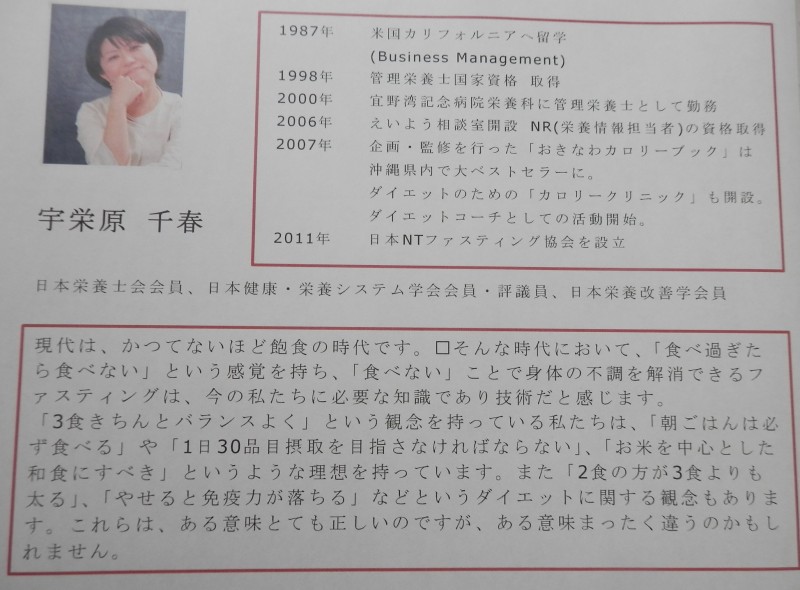 1987年 米国カリフォルニアへ留学
(Business Management)
1998年 管理栄養士国家資格 取得
2000年 宜野湾記念病院栄養科に管理栄養士として勤務
2006年 えいよう相談室開設 NR(栄養情報担当者)の資格取得
2007年 企画・監修を行った「おきなわカロリーブック」は
沖縄県内で大ベストセラーに。
ダイエットのための「カロリークリニック」も開設。
ダイエットコーチとしての活動開始。
2011年 日本NTファスティング協会を設立
宇栄原 千春
日本栄養士会会員、日本健康・栄養システム学会会員・評議員、日本栄養改善学会員
現代は、かつてないほど飽食の時代です。□そんな時代において、「食べ過ぎた
ら食べない」という感覚を持ち、「食べない」ことで身体の不調を解消できるフ
ァスティングは、今の私たちに必要な知識であり技術だと感じます。
「3食きちんとバランスよく」という観念を持っている私たちは、「朝ごはんは必
ず食べる」や「1日30品目摂取を目指さなければならない」、「お米を中心とした
和食にすべき」というような理想を持っています。また「2食の方が3食よりも
太る」、「やせると免疫力が落ちる」などというダイエットに関する観念もありま
す。これらは、ある意味とても正しいのですが、ある意味まったく違うのかもし
れません。